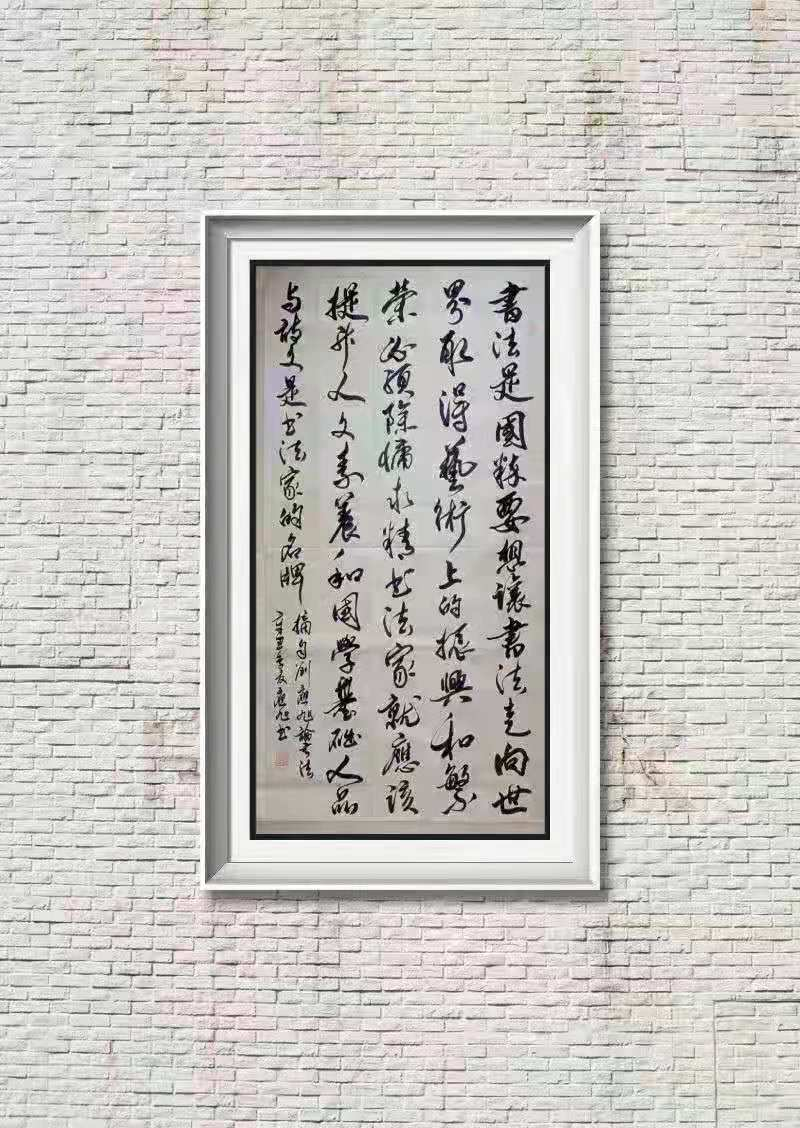 書法是國粹要想讓書法走向世
界取得藝術上的振興和繁
榮必須除慵求精书法家就應該
提升人文素養和國學基礎人品
与詩文是书法家的名牌
摘自刘應旭論书法
應旭书